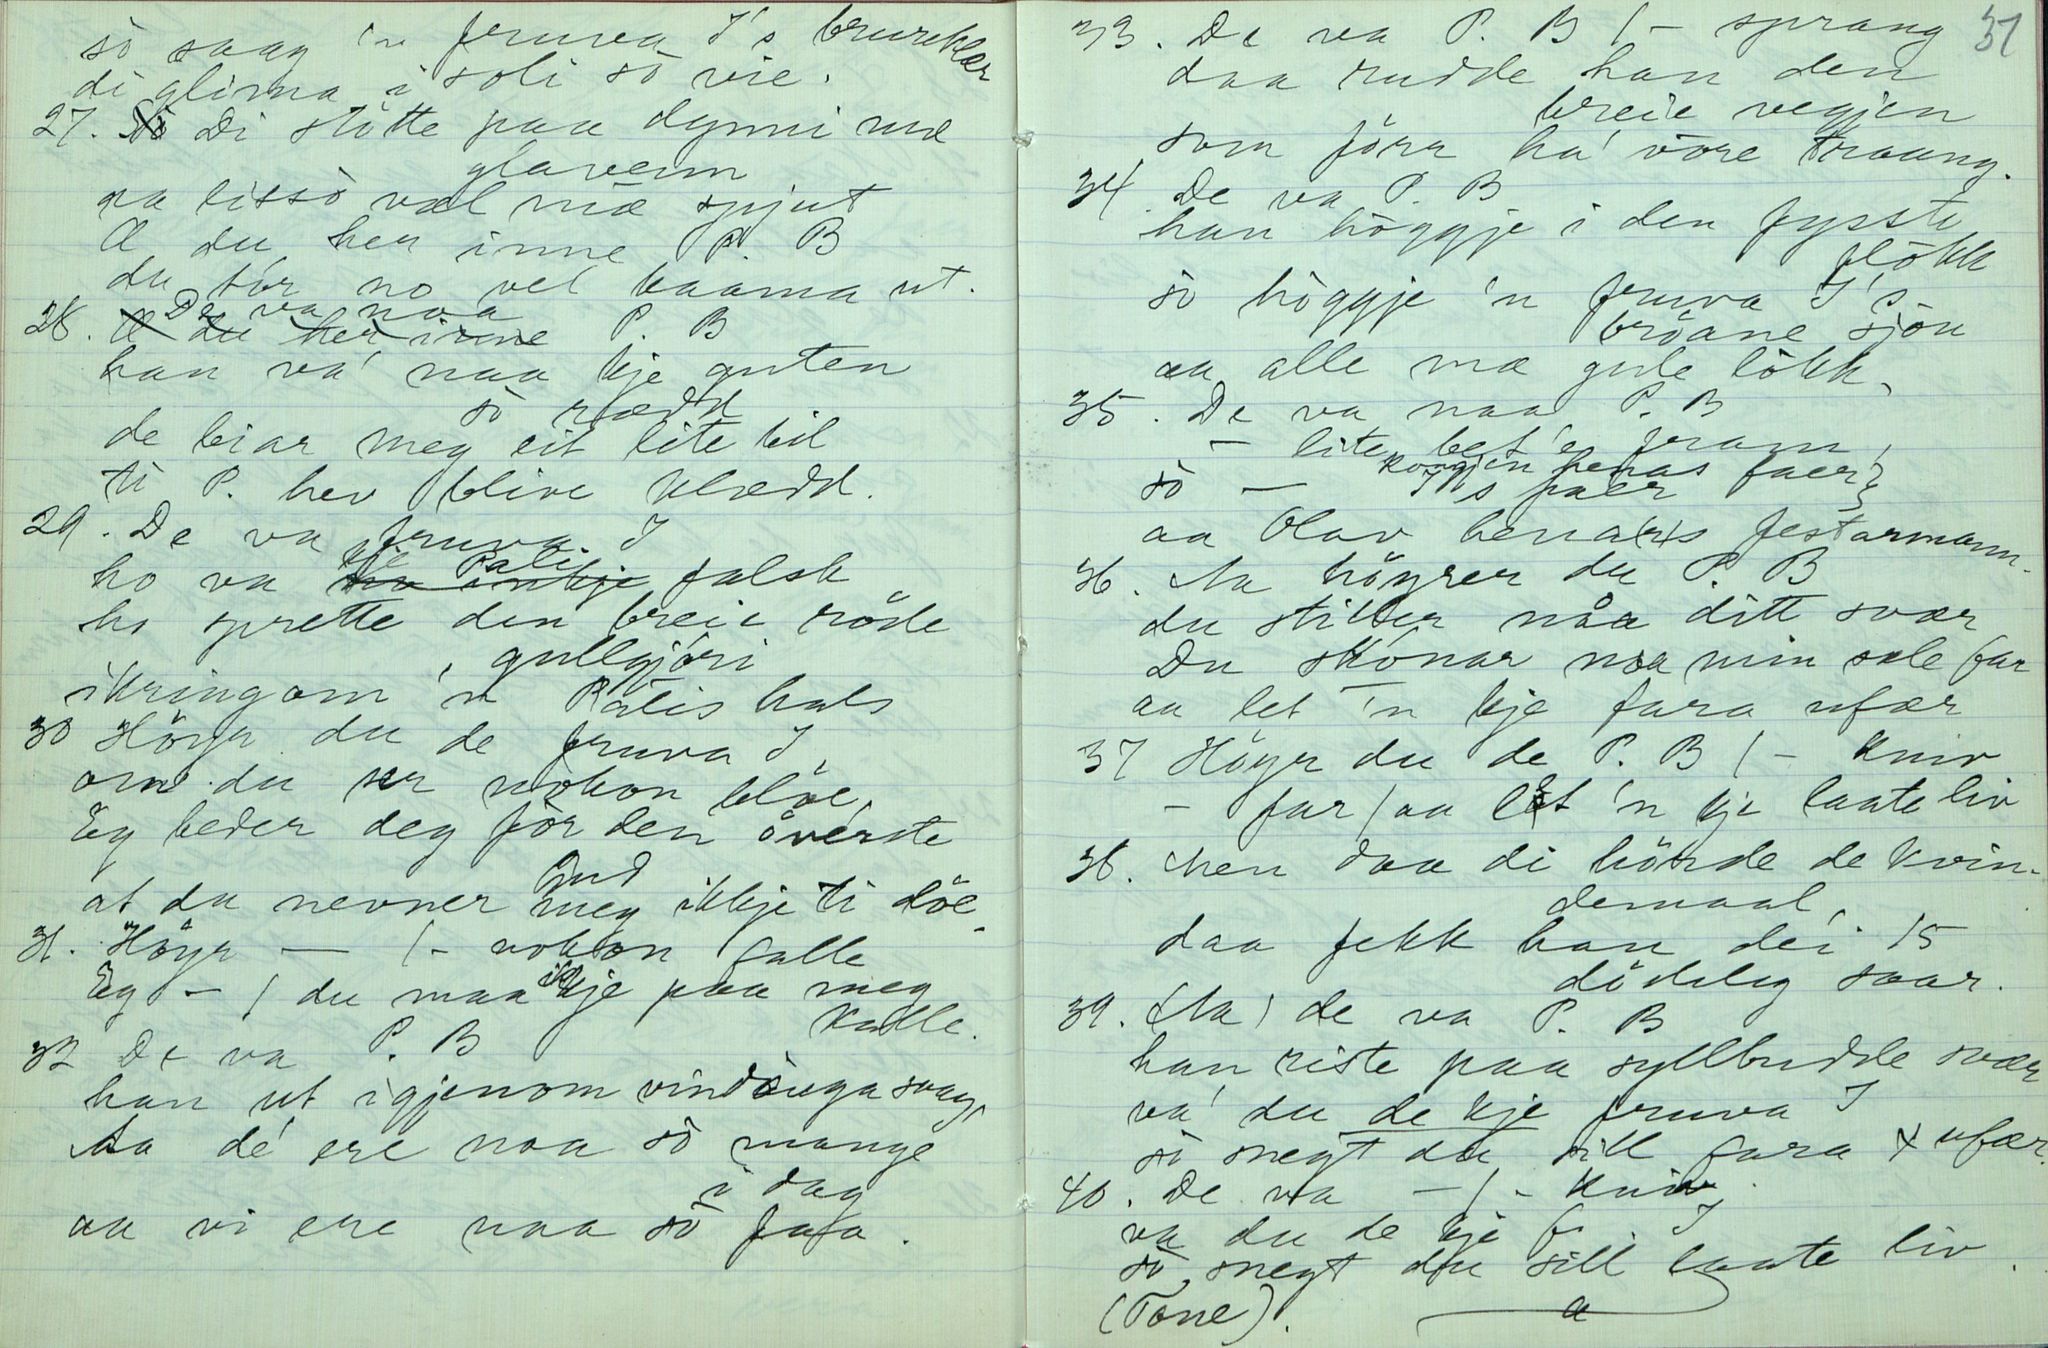 sò saag 'n fruva I's brureklær
di glima i soli sò vie.
27. Di stötte paa dynni mæ
glaveim
aa lissò væl mæ spjut
Æ du her inne P. B
du tór no vel kaama ut.
28. De va naa P. B
han va' naa kje guten
sò rædd
de biar meg eit lite bil
ti P. hev blive klædd.
29. De va fruva I
ho va kje Pali falsk
ho sprette den breie röde
gullgjóri
ikringom 'n Palis hals
30 Höyr du de fruva I
om du ser nokon blöe,
Eg beder deg för den överste
Gud
at du nevner meg ikkje ti döe.
31. Höyr — /- nokon falle
Eg - / du maa ikkje paa meg
kalle.
32 De va P. B
han ut igjenom vindauga svag,
Aa de' ere naa sò mange
i dag
aa vi ere naa sò faa.
37
33. De va P. B /- sprang
daa rudde han den
breie vegjen
som förr ha' vöre traang.
34. De va P. B
han höggje i den fysste
flökk
sò höggje 'n fruva I's
bröane sjou
aa alle mæ gule lökk.
35. De va naa P. B
- lite bet'er fram,
sò — kongjen henas faer
I's faer
aa Olav hena(r)s festarmann.
36. Aa höyrer du P. B
du stiller nåa ditt svær
Du skónar naa min sæle far
aa let 'n kje fara ufær
37 Höyr du de P. B /- kniv
- far / aa lEt 'n kje laate liv
38. Men daa di hörde de kvin-
demaal,
daa fekk han dei 15
dödeleg saar.
39. (Aa) de va P. B
han riste paa syllbudde svær
va' du de kje fruva I
sò snegt du sill fara ufær.
40. De va - /- kniv,
va du de kje f. I
sò snegt du sill laate liv.
(Tone).